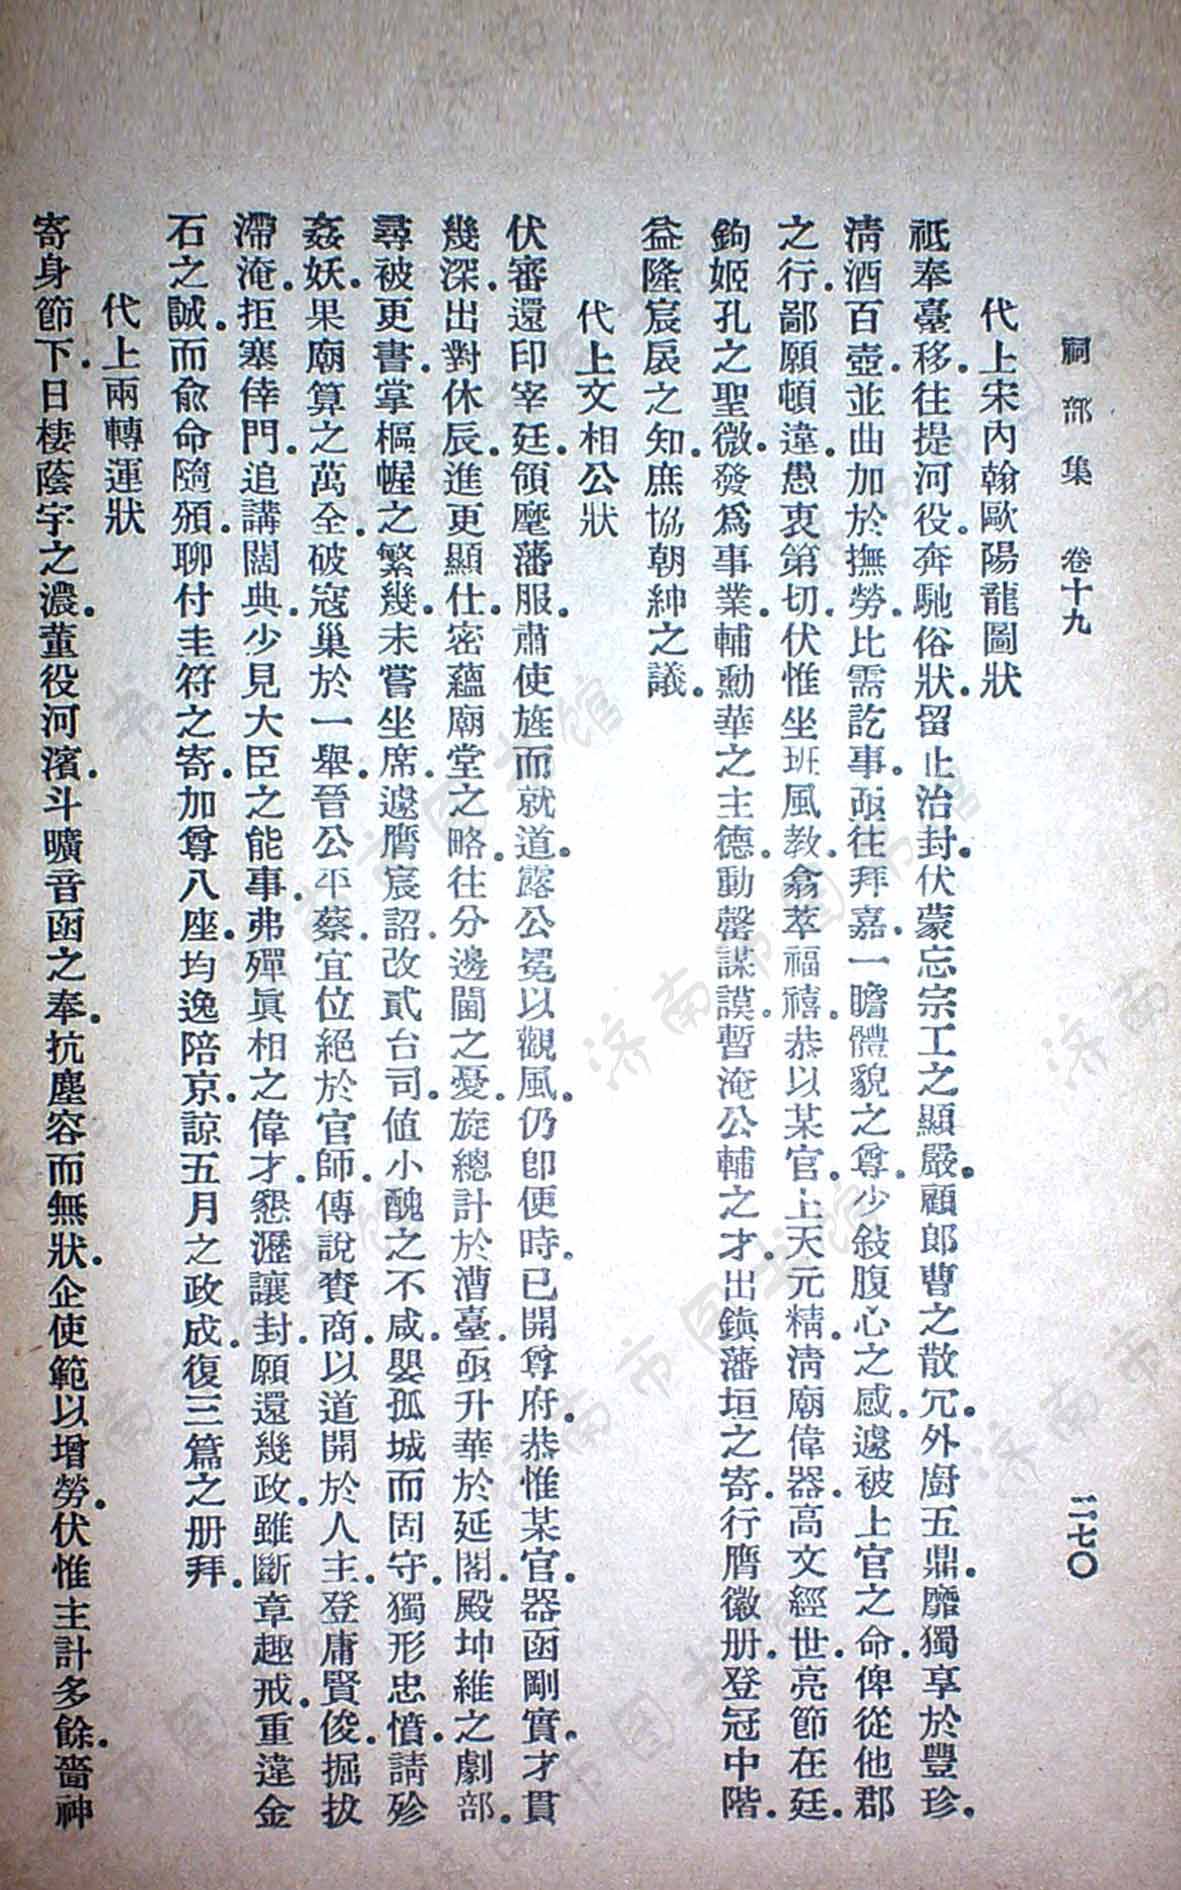 祠部集　卷十九　二七〇
代上宋內翰歐陽龍圖狀
祇奉臺移。往提河役。奔馳俗狀。留止治封。伏蒙忘宗工之顯嚴。顧郎曹之散冗。外廚五鼎。靡獨享於豐珍。
淸酒百壺。並曲加於撫勞。比需訖事。亟往拜嘉。一瞻體貌之尊。少敍腹心之感。遽被上官之命。俾從他郡
之行。鄙願頓違。愚衷第切。伏惟坐班風教。翕萃福禧。恭以某官。上天元精。淸廟偉器。高文經世。亮節在廷。
鉤姬孔之聖微。發爲事業。輔勳華之主德。動罄謀謨。暫淹公輔之才。出鎭藩垣之寄。行膺徽册。登冠中階。
益隆宸扆之知。庶協朝紳之議。
代上文相公狀
伏審還印宰廷。領麾藩服。肅使旌而就道。露公冕以觀風。仍卽便時。已開尊府。恭惟某官。器函剛實。才貫
幾深。出對休辰。進更顯仕。密蘊廟堂之略。往分邊閫之憂。旋總計於漕臺。亟升華於延閣。殿坤維之劇部。
尋被更書。掌樞幄之繁幾。未嘗坐席。遽膺宸詔。改貳台司。値小醜之不咸。嬰孤城而固守。獨形忠憤。請殄
姦妖。果廟算之萬全。破寇巢於一舉。晉公平蔡。宜位絕於官師。傅說賚商。以道開於人主。登庸賢俊。掘拔
滯淹。拒塞倖門。追講闊典。少見大臣之能事。弗殫眞相之偉才。懇瀝讓封。願還幾政。雖斷章趣戒。重違金
石之誠。而俞命隨頒。聊付圭符之寄。加尊八座。均逸陪京。諒五月之政成。復三篇之册拜。
代上兩轉運狀
寄身節下。日棲蔭宇之濃。董役河濱。斗曠音函之奉。抗塵容而無狀。企使範以增勞。伏惟主計多餘。嗇神